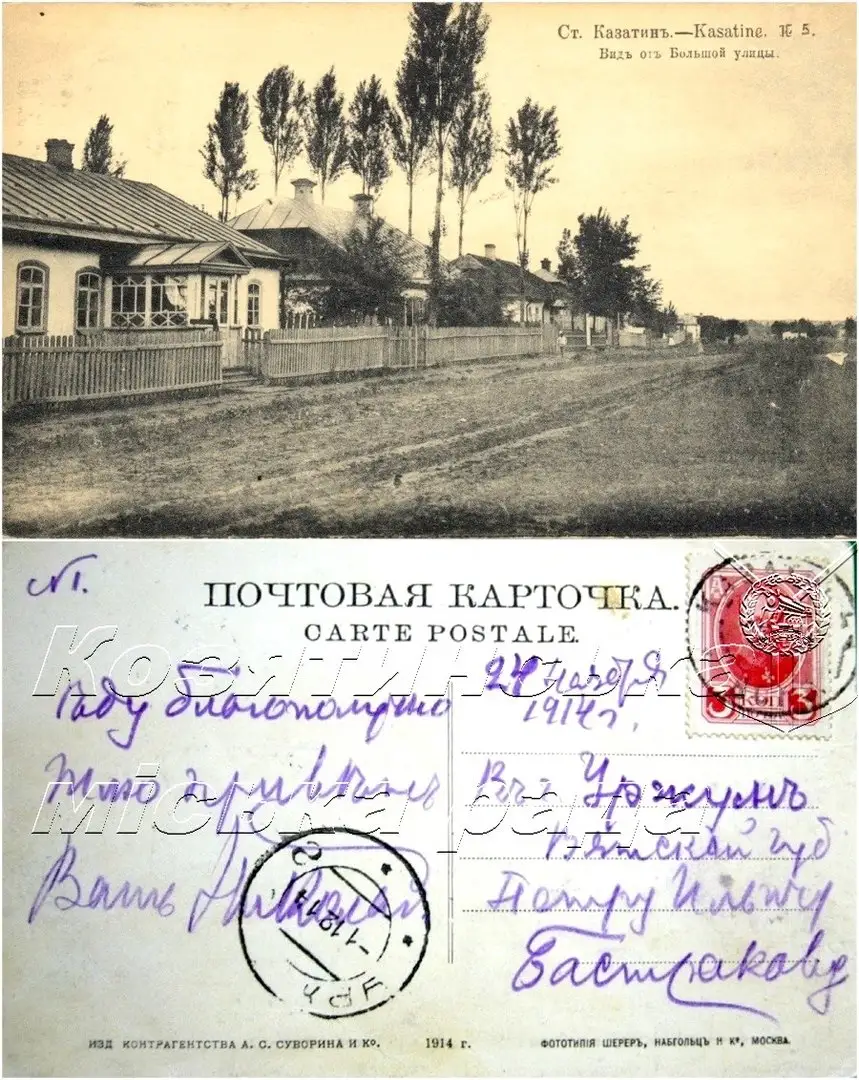 Ст. Казатинъ.—Kasatine. № 5.
Видъ отъ Большой улицы.
№1.
ПОЧТОВАЯ КАРТОЧКА.
CARTE POSTALE.
24 Ноября
1914 г.
Ѣду благополучно
Шлю привѣтъ
Вашъ Николай
Въ г. Уржумъ
Вятской губ
Петру Ильичу
Бастракову
3 КОП 3
-1.12.14
УРЖ
Козятинська
міська рада
ИЗД КОНТРАГЕНТСТВА А. С. СУВОРИНА И Ко. 1914 г. ФОТОТИПІЯ ШЕРЕРЪ, НАБГОЛЬЦЪ И Ко, МОСКВА.